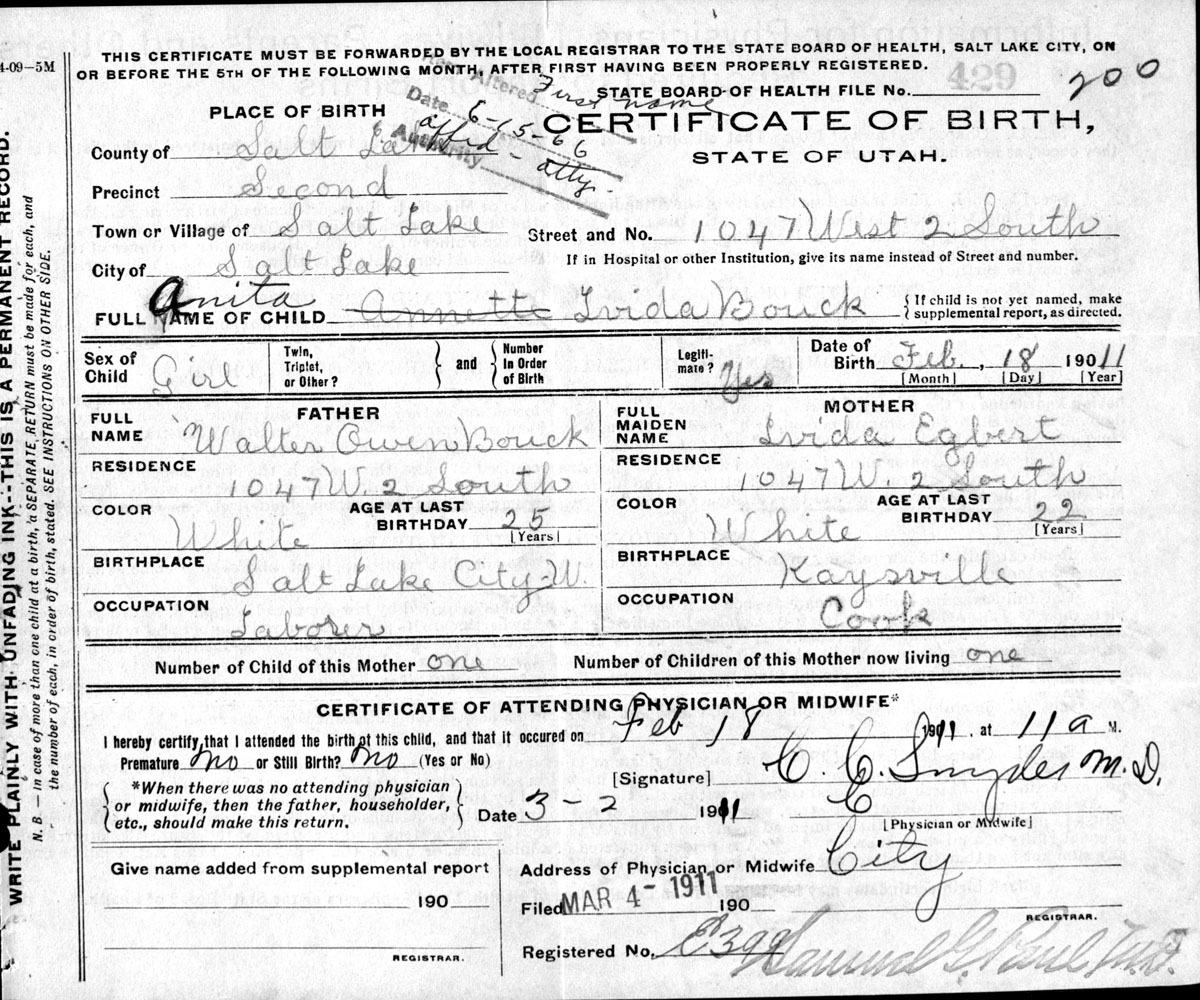 THIS CERTIFICATE MUST BE FORWARDED BY THE LOCAL REGISTRAR TO THE STATE BOARD OF HEALTH, SALT LAKE CITY, ON
OR BEFORE THE 5TH OF THE FOLLOWING MONTH, AFTER FIRST HAVING BEEN PROPERLY REGISTERED.
4-09-5M
STATE BOARD OF HEALTH FILE No. 429
200
Altered First name
Date 6-15-66
Authority affid - atty.
PLACE OF BIRTH
CERTIFICATE OF BIRTH,
STATE OF UTAH.
County of Salt Lake
Precinct Second
Town or Village of Salt Lake
Street and No. 1047 West 2 South
City of Salt Lake
If in Hospital or other Institution, give its name instead of Street and number.
Anita
FULL NAME OF CHILD Annette Ivida Bouck
{If child is not yet named, make
supplemental report, as directed.
Sex of Child Girl
Twin, Triplet, or Other?
and
Number In Order of Birth
Legiti-mate? Yes
Date of Birth Feb. , 18 19011
[Month] [Day] [Year]
FATHER
FULL NAME Walter Owen Bouck
RESIDENCE 1047 W. 2 South
COLOR White
AGE AT LAST BIRTHDAY 25 [Years]
BIRTHPLACE Salt Lake City-U.
OCCUPATION Laborer
MOTHER
FULL MAIDEN NAME Ivida Egbert
RESIDENCE 1047 W. 2 South
COLOR White
AGE AT LAST BIRTHDAY 22 [Years]
BIRTHPLACE Kaysville
OCCUPATION Cook
Number of Child of this Mother one
Number of Children of this Mother now living one
CERTIFICATE OF ATTENDING PHYSICIAN OR MIDWIFE*
I hereby certify that I attended the birth of this child, and that it occured on Feb 18 1911, at 11 a M.
Premature No or Still Birth? No (Yes or No)
*When there was no attending physician
or midwife, then the father, householder,
etc., should make this return.
[Signature] C. C. Snyder M.D.
Date 3-2 1911
[Physician or Midwife]
Give name added from supplemental report
190
REGISTRAR.
Address of Physician or Midwife City
Filed MAR 4 - 1911 190
REGISTRAR.
Registered No. E399
Samuel G. Paul M.D.
WRITE PLAINLY WITH UNFADING INK--THIS IS A PERMANENT RECORD.
N. B. — In case of more than one child at a birth, a SEPARATE RETURN must be made for each, and
the number of each, in order of birth, stated. SEE INSTRUCTIONS ON OTHER SIDE.